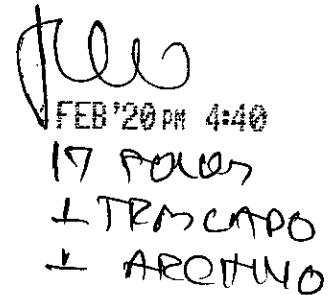 FEB '20 PM 4:40
17 FOLIOS
1 TRASLADO
1 ARCHIVO